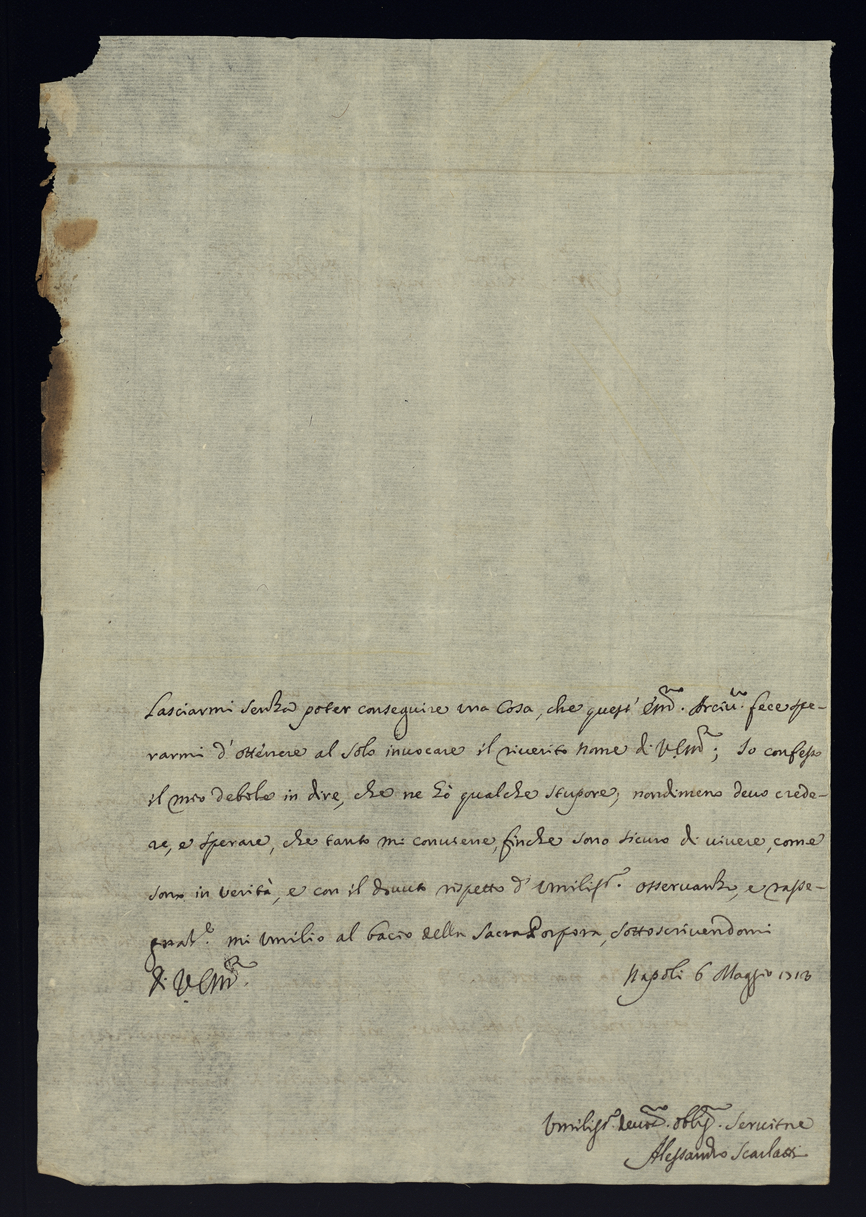 Lasciarmi senza poter conseguire una Cosa, che quest' Em.mo Arciu.o fece spe-
rarmi d'ottenere al solo inuocare il riuerito nome di V. Em.za; Io confesso
il mio debole in dire, che ne hò qualche stupore; nondimeno deuo crede-
re, e sperare, che tanto mi conuiene, finche sono sicuro di uiuere, come
sono in verità, e con il douuto rispetto d'Vmiliss.a osseruanza, e rasse-
gnat.e mi vmilio al bacio della Sacra Porpora, sottoscriuendomi
di V. Em.za
Napoli 6 Maggio 1713
Vmiliss.o deuot.mo obblig.mo Seruitore
Alessandro Scarlatti